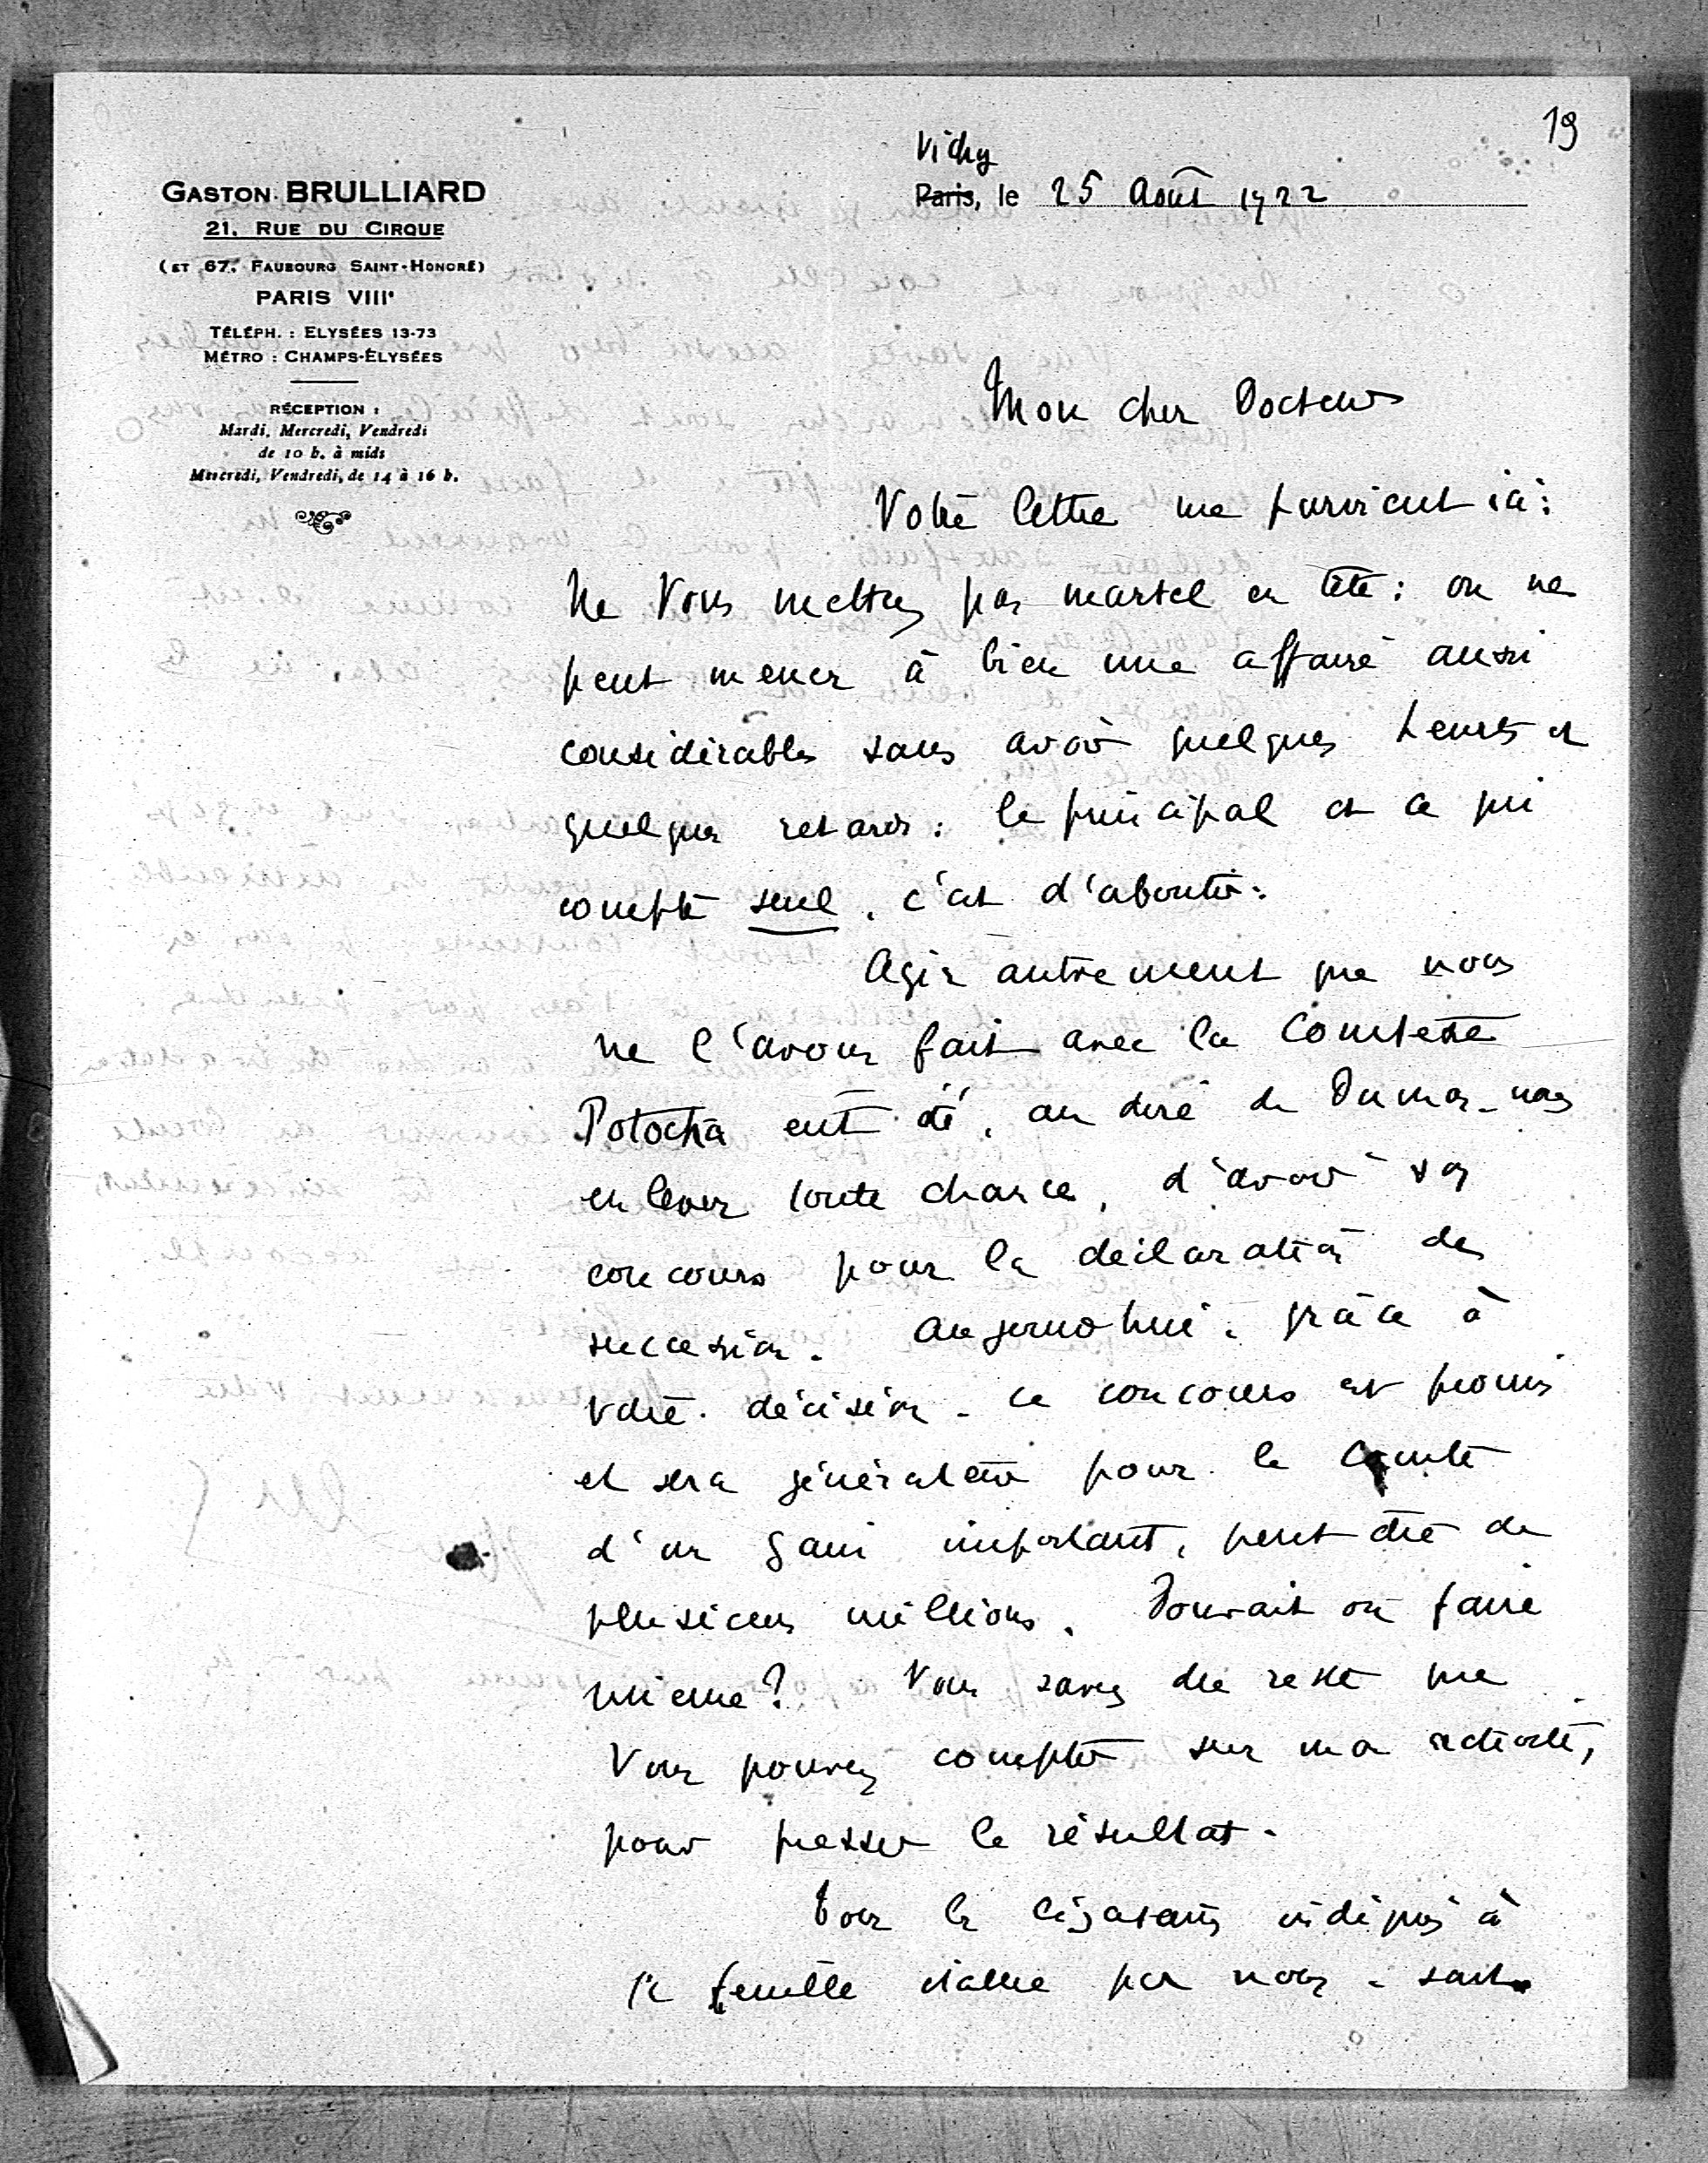 19
GASTON BRULLIARD
21, RUE DU CIRQUE
(ET 67, FAUBOURG SAINT-HONORÉ)
PARIS VIIIe
TÉLÉPH. : ELYSÉES 13-73
MÉTRO : CHAMPS-ÉLYSÉES
RÉCEPTION :
Mardi, Mercredi, Vendredi
de 10 h. à midi
Mercredi, Vendredi, de 14 à 16 h.
Vichy
Paris, le 25 Août 1922
Mon cher Docteur
Votre lettre me parvient ici :
Ne vous mettez pas martel en tête : on ne
peut mener à bien une affaire aussi
considérable sans avoir quelques heurts et
quelques retards : le principal et ce qui
compte seul, c'est d'aboutir.
Agir autrement que nous
ne l'avons fait avec la Comtesse
Potocka eut été, au dire de Dumas, nous
enlever toute chance, d'avoir son
concours pour la déclaration de
succession. Aujourd'hui, grâce à
votre décision, ce concours est promis
et sera générateur pour le Comte
d'un gain important, peut être de
plusieurs millions. Pouvait on faire
mieux ? Vous savez du reste que
vous pouvez compter sur mon activité,
pour presser le résultat.
Tous les légataires indiqués à
la feuille établie par nous, sont